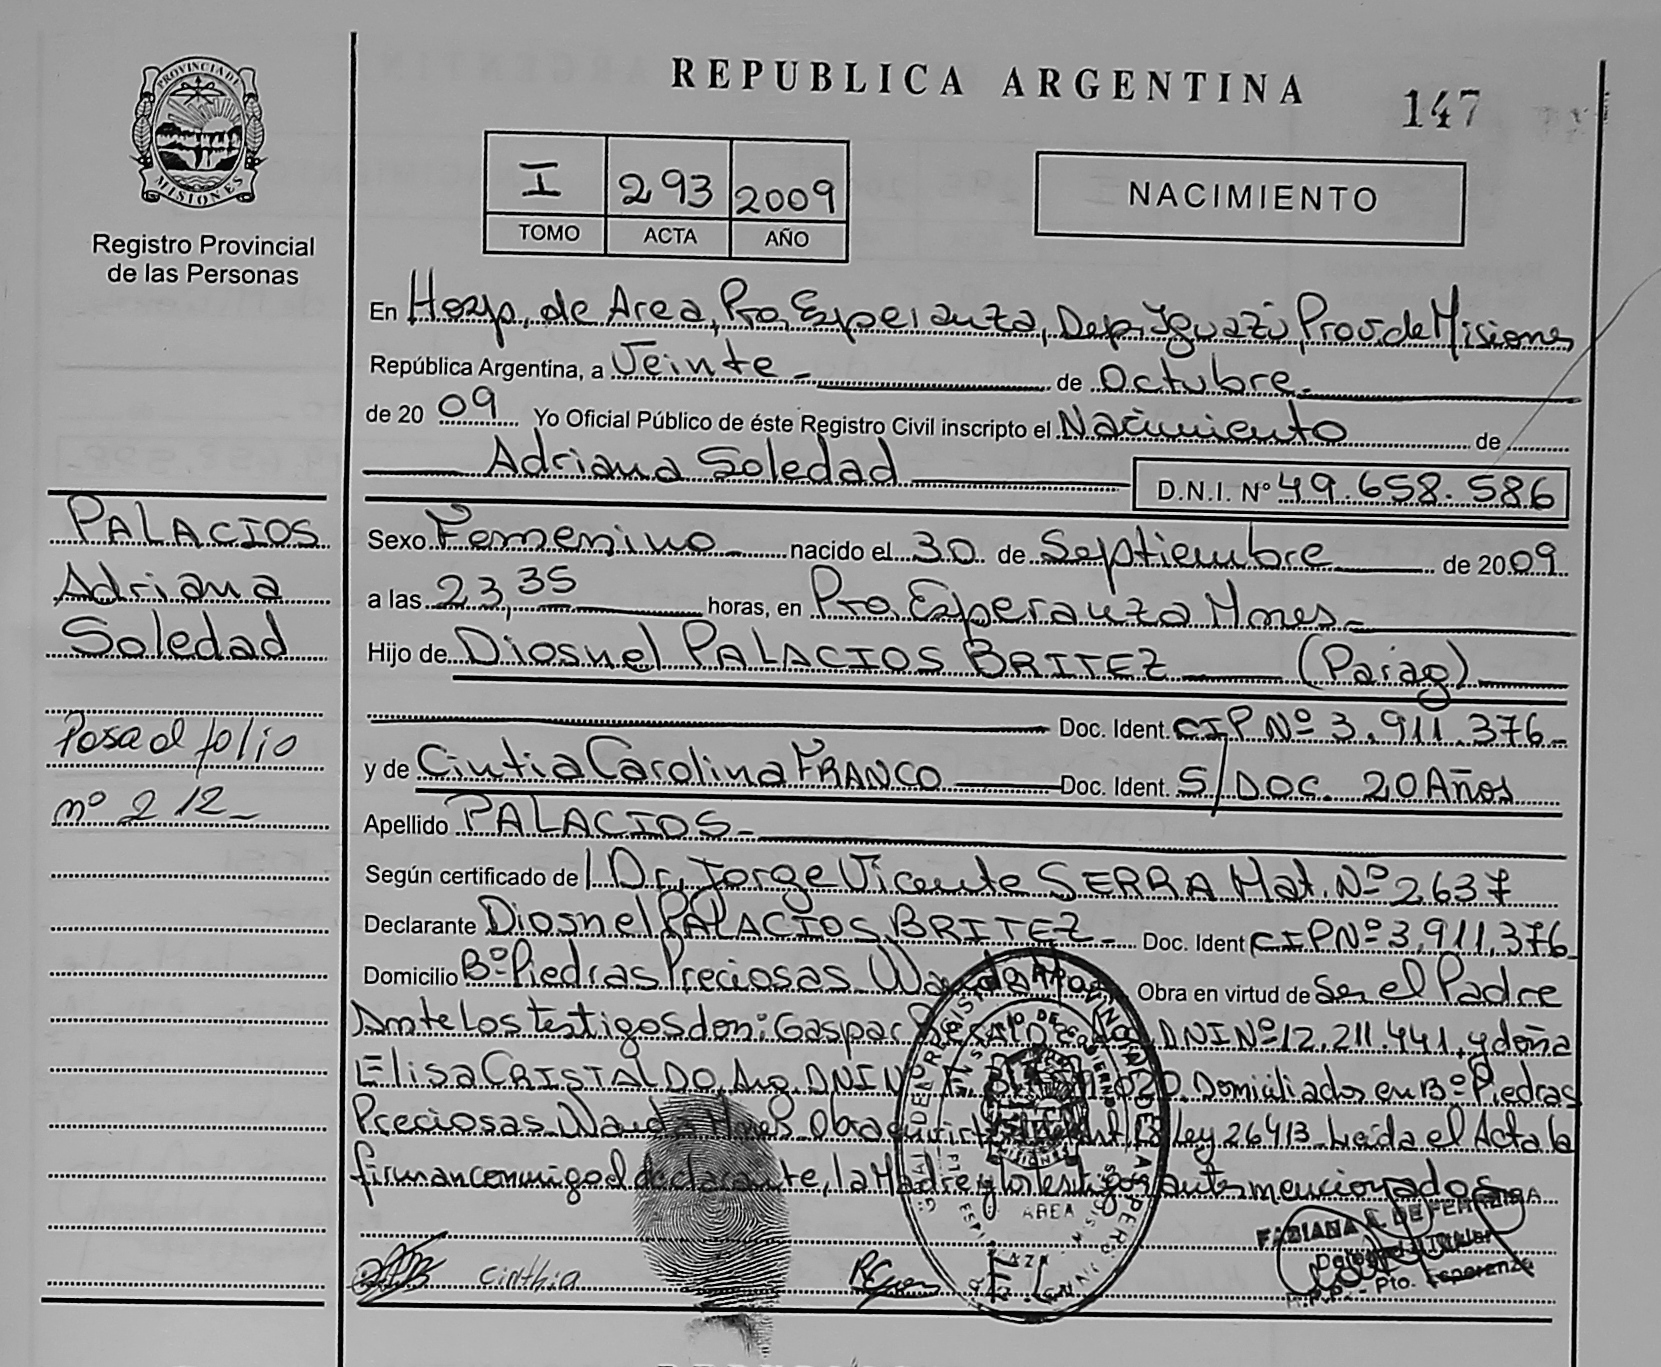 REPUBLICA ARGENTINA
147
PROVINCIA DE
MISIONES
Registro Provincial
de las Personas
I 293 2009
TOMO ACTA AÑO
NACIMIENTO
En Hosp. de Area, Pto. Esperanza, Dep. Iguazú, Prov. de Misiones
República Argentina, a Veinte - de Octubre.
de 20 09 Yo Oficial Público de éste Registro Civil inscripto el Nacimiento de
Adriana Soledad D.N.I. Nº 49.658.586
Sexo Femenino nacido el 30 de Septiembre de 2009
a las 23,35 horas, en Pto. Esperanza Mnes -
Hijo de Diosnel PALACIOS BRITEZ (Parag)
Doc. Ident. CIP Nº 3.911.376-
y de Cintia Carolina FRANCO Doc. Ident. S/DOC. 20 Años
Apellido PALACIOS -
Según certificado del Dr. Jorge Vicente SERRA Mat. Nº 2637
Declarante Diosnel PALACIOS BRITEZ - Doc. Ident CIP Nº 3.911.376
Domicilio Bº Piedras Preciosas Wanda Obra en virtud de Ser el Padre
Ante los testigos don: Gaspar DNI Nº 12.211.441, y doña
Elisa CRISTALDO, DNI Domiciliados en Bº Piedras
Preciosas Wanda Mnes Obra ley 26413 Leída el Acta la
firman conmigo el declarante, la Madre y los testigos antes mencionados
Cinthia
FABIANA DE FERREIRA
Delegada Titular
R.P.P. - Pto. Esperanza
PALACIOS
Adriana
Soledad
Pasa al folio
nº 212-